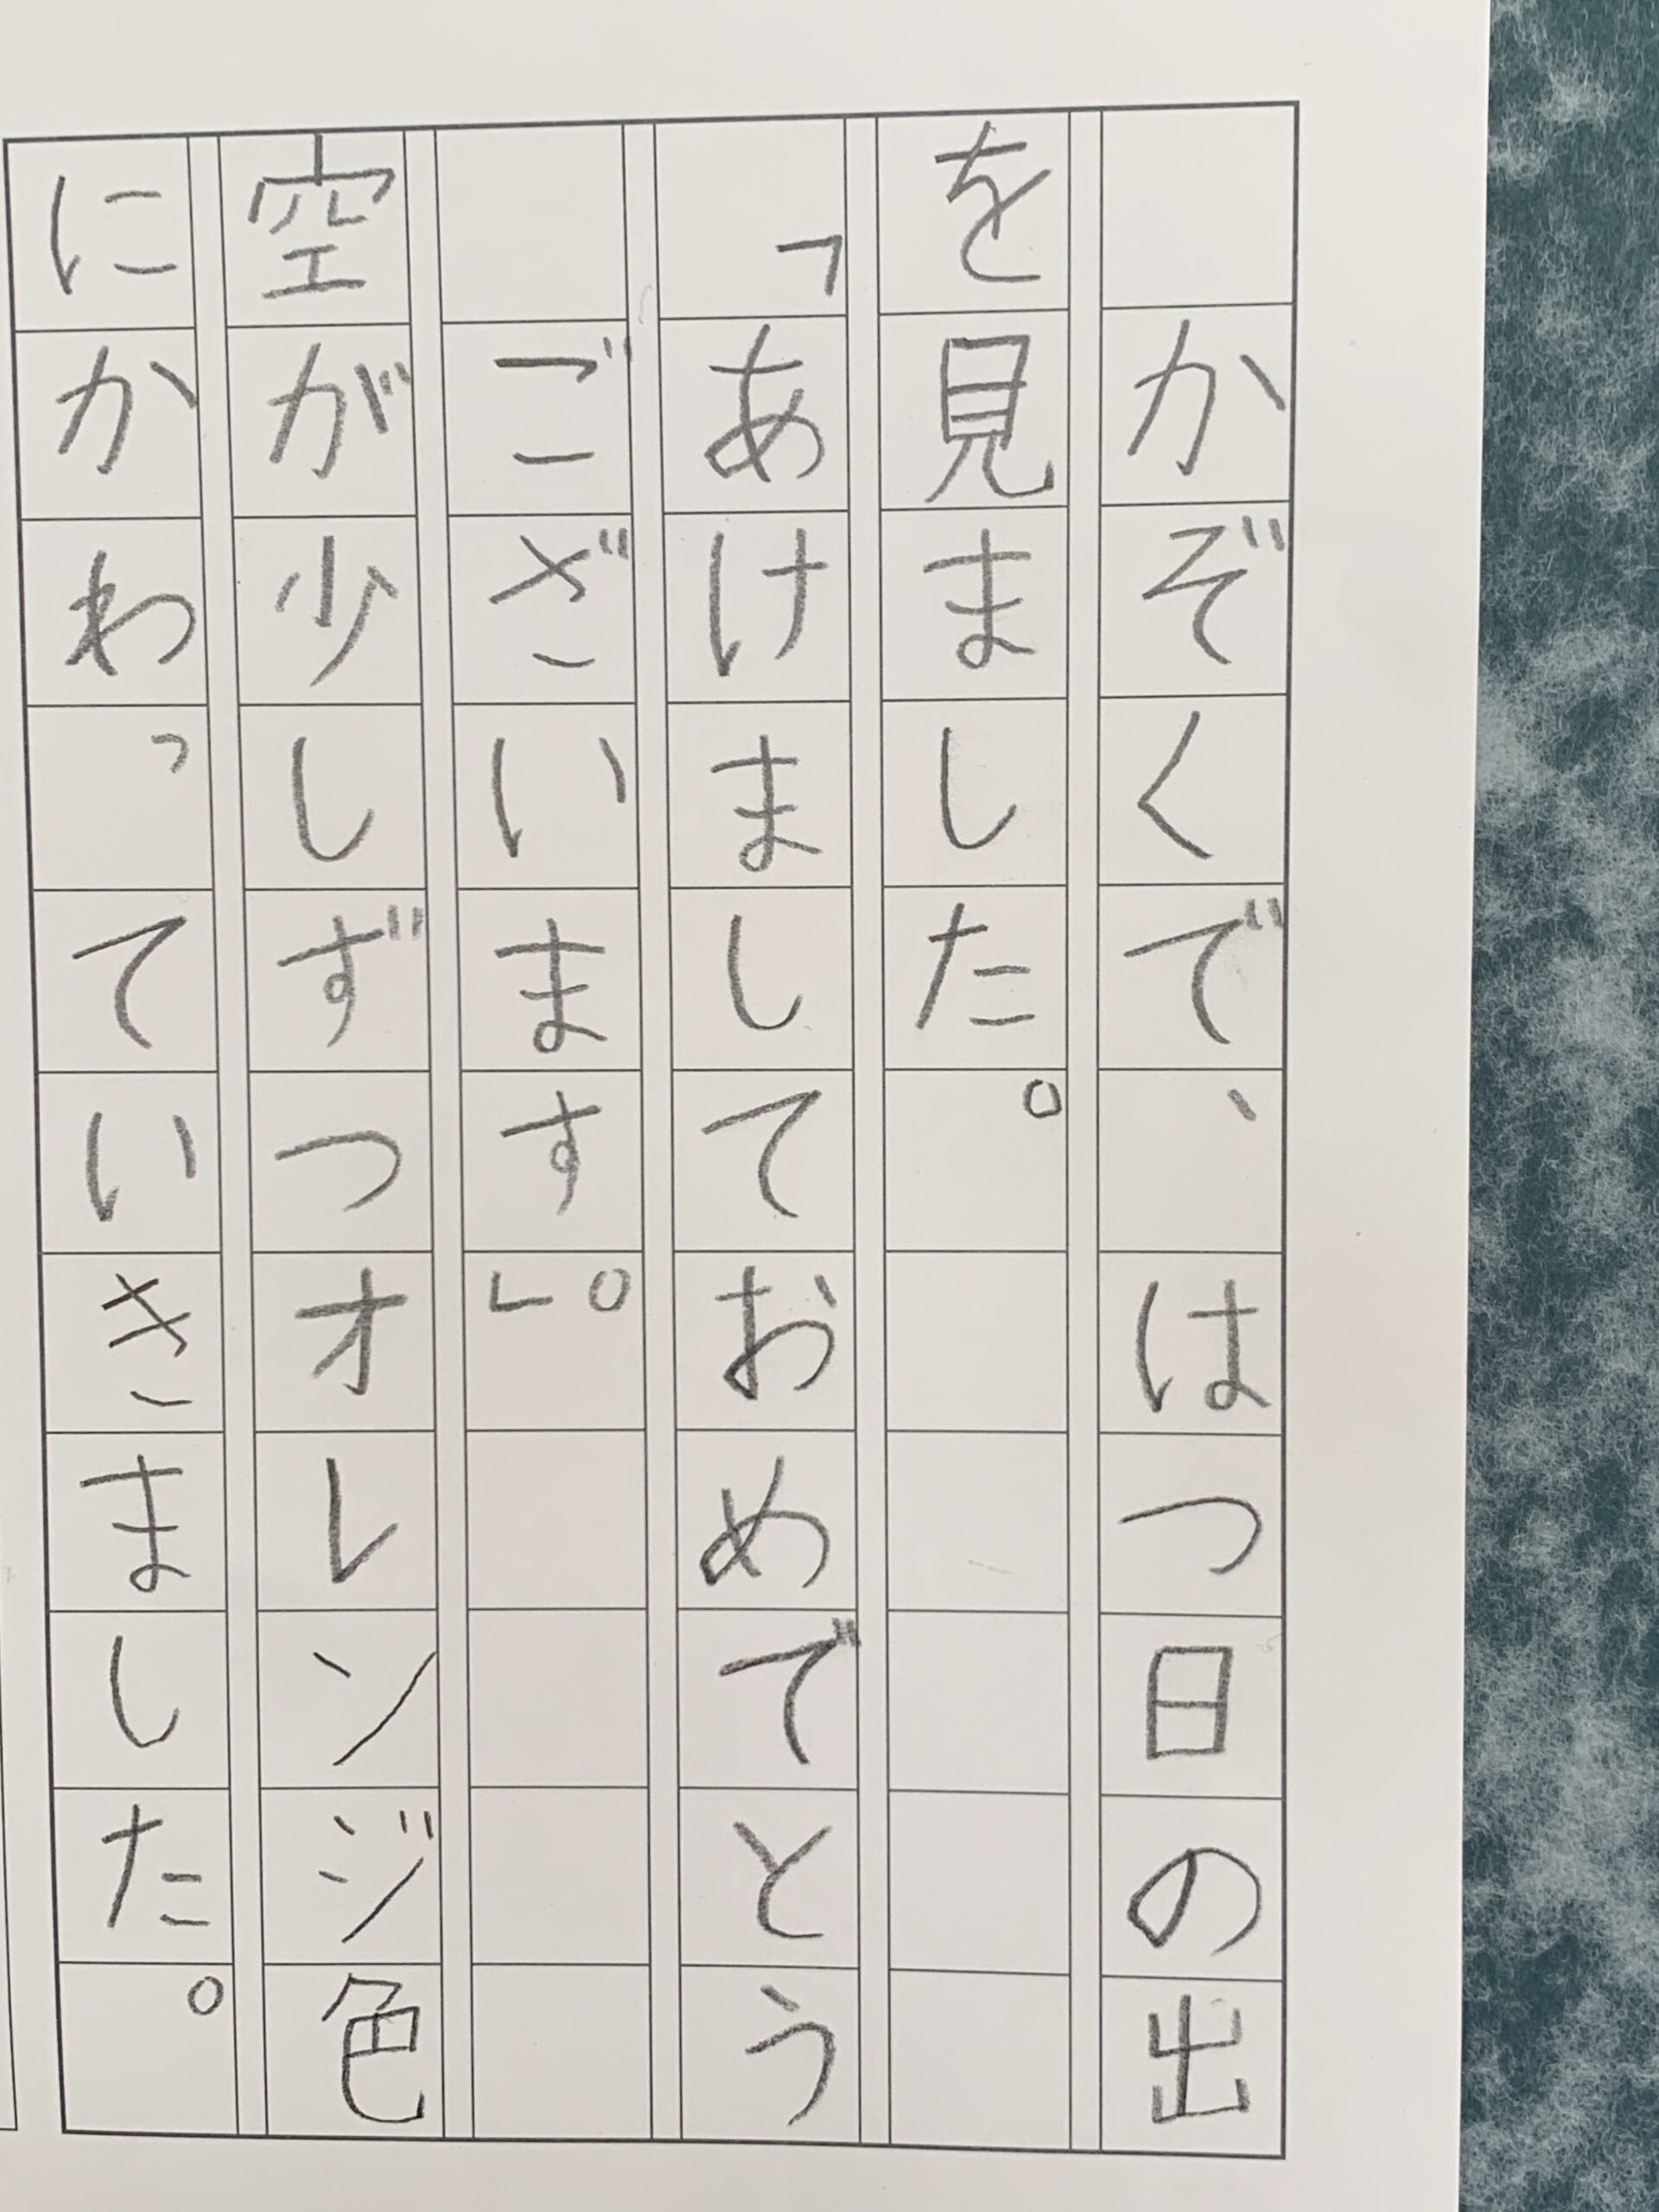 かぞくで、はつ日の出
を見ました。
「あけましておめでとう
ございます。」
空が少しずつオレンジ色
にかわっていきました。